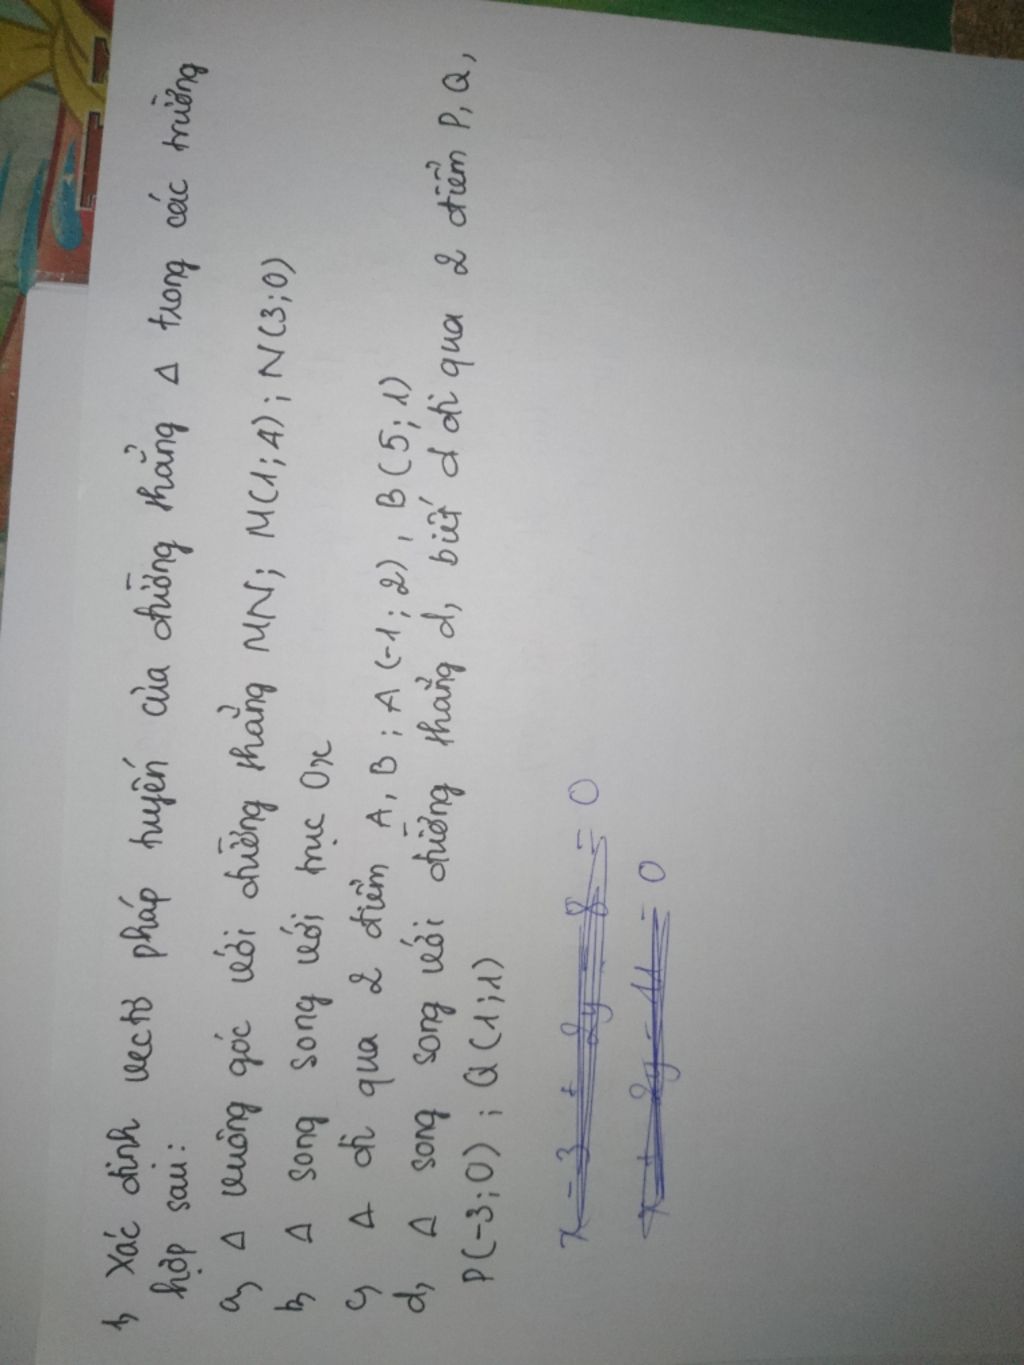 1, Xác định vectơ pháp tuyến của đường thẳng Δ trong các trường
hợp sau:
a, Δ vuông góc với đường thẳng MN; M(1; 4); N(3; 0)
b, Δ song song với trục Ox
c, Δ đi qua 2 điểm A, B; A(-1; 2), B(5; 1)
d, Δ song song với đường thẳng d, biết d đi qua 2 điểm P, Q,
P(-3; 0); Q(1; 1)
x - 3 + 2y - 8 = 0
x + 2y - 11 = 0